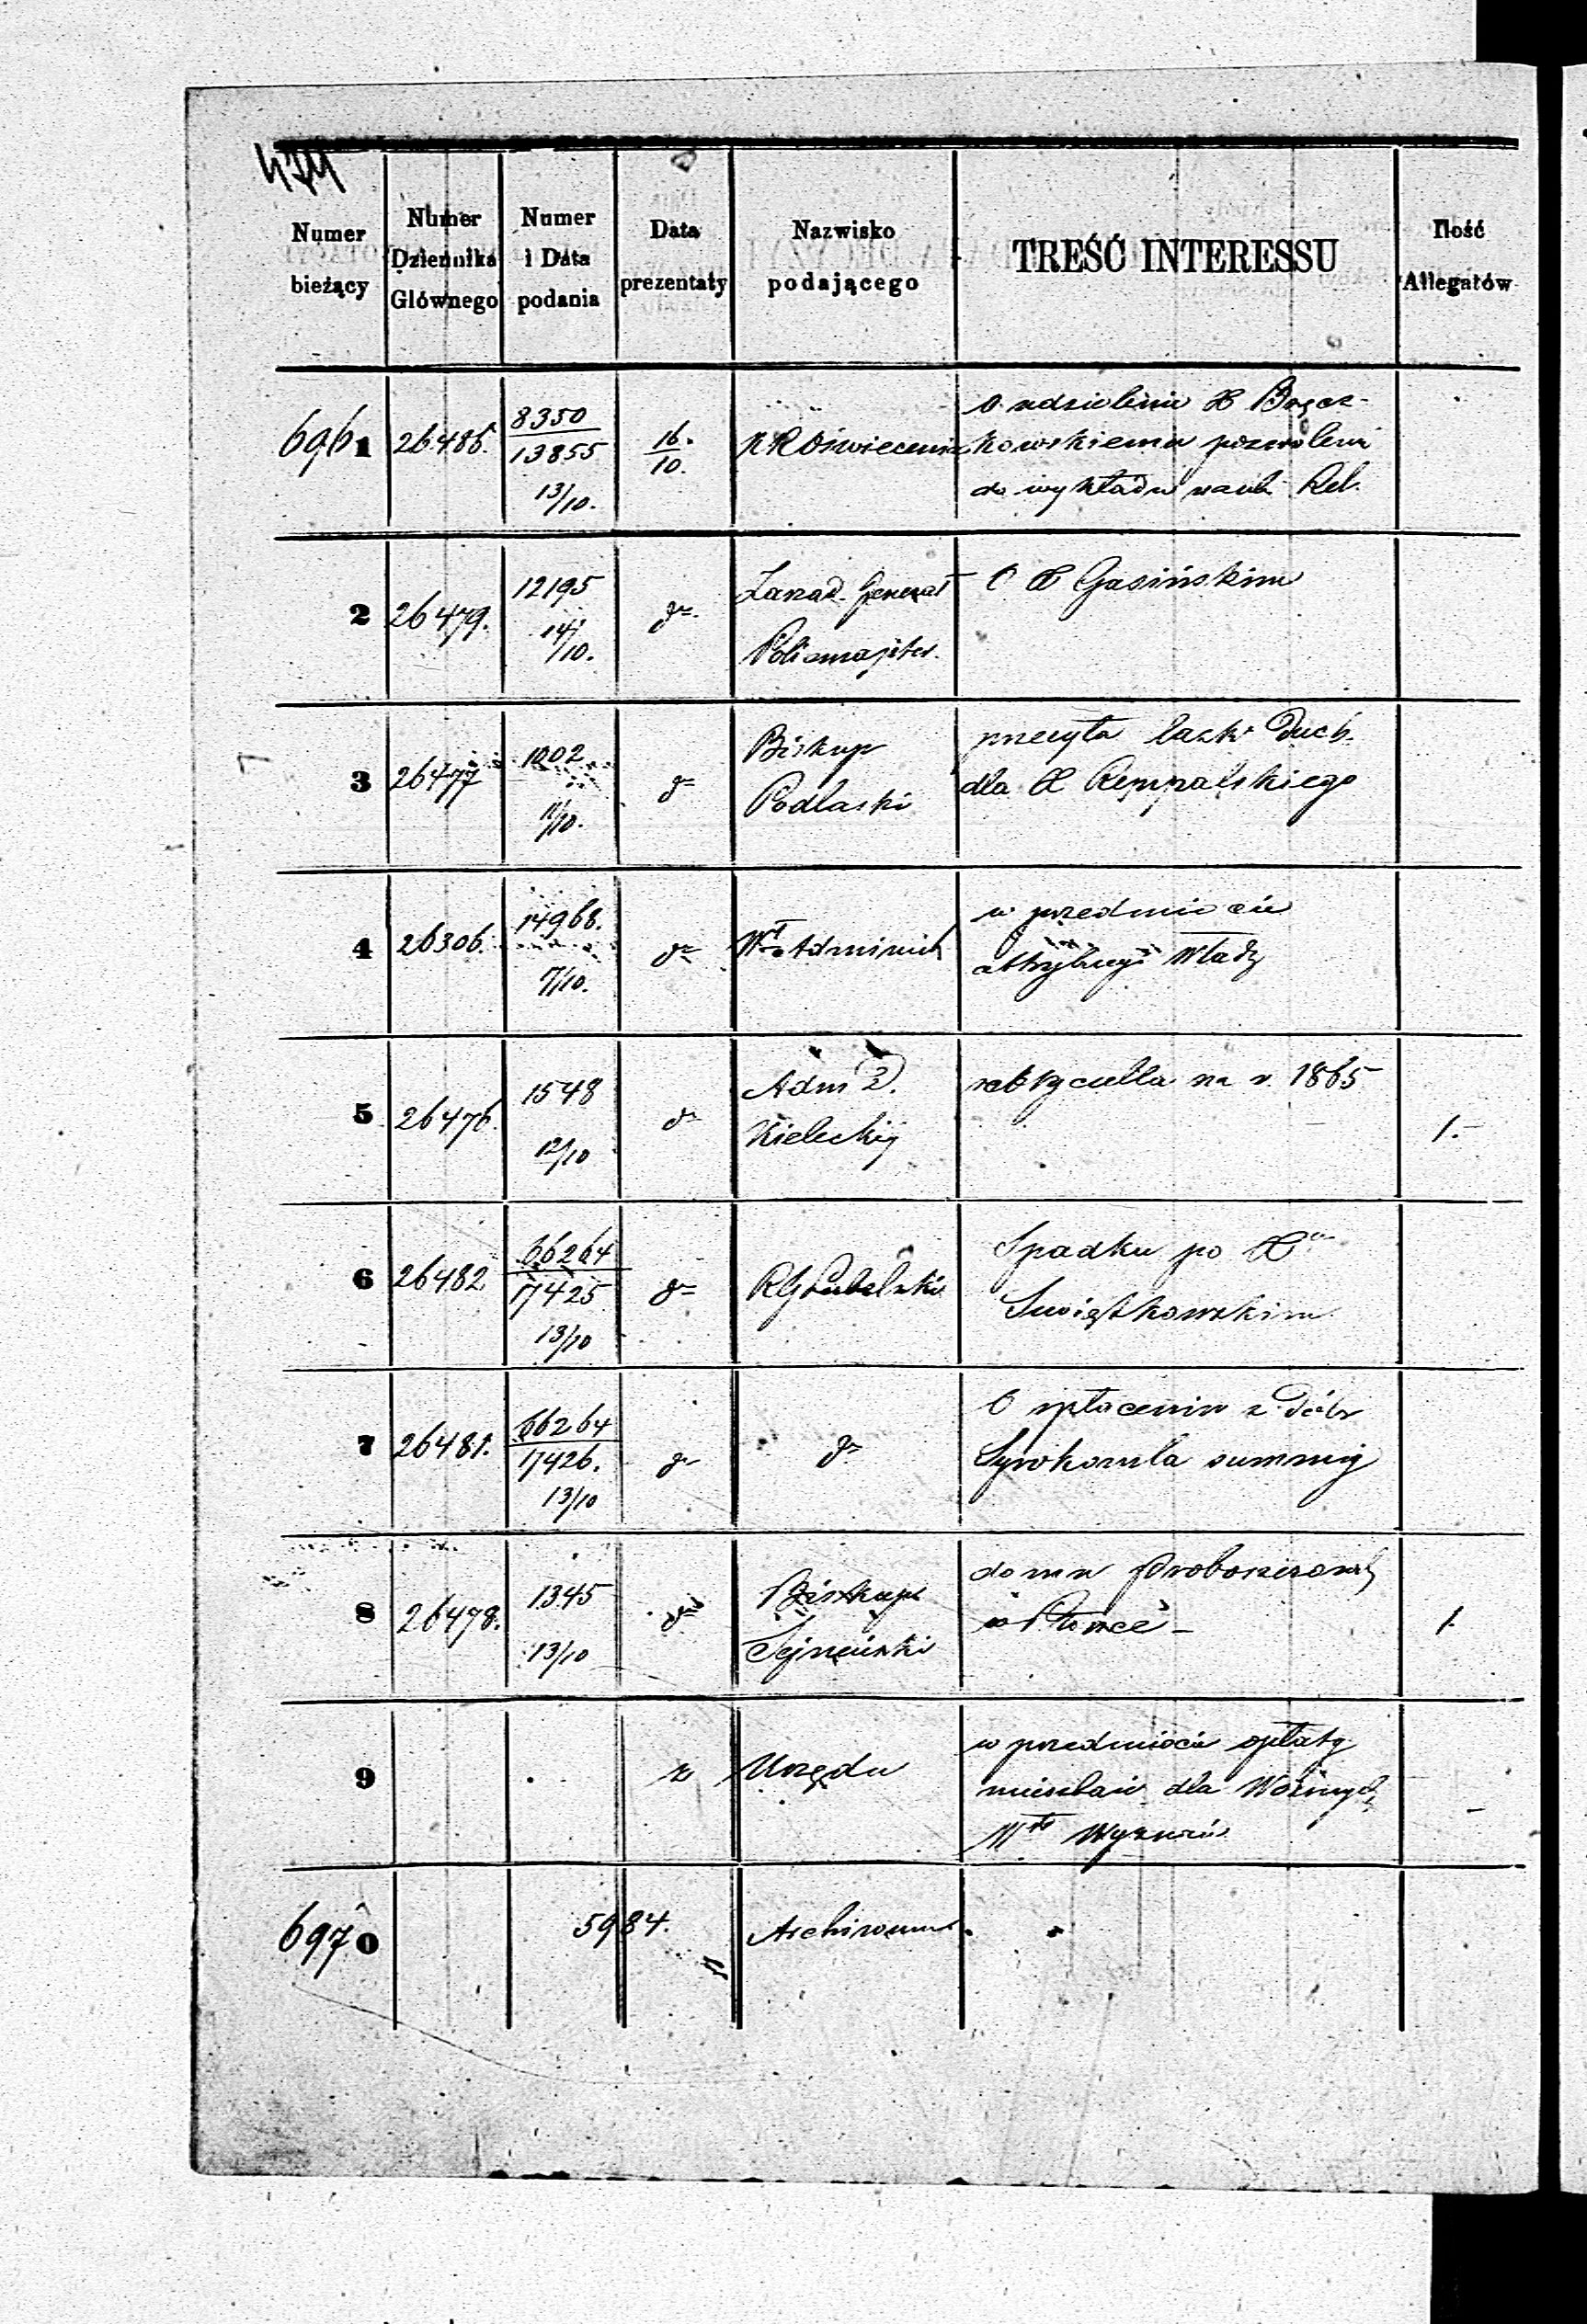 474
Numer bieżący
Numer Dziennika Głównego
Numer i Data podania
Data prezentaty
Nazwisko podającego
TREŚĆ INTERESSU
Ilość Allegatów
6961
26.486.
8350
13855
13/10.
16.
10.
KROświecenia
O udzielenie X
kowskiemu pozwoleni
do wykładu nauk Rel.
2
26479.
12195
14/10.
do
Zarząd. Generał
Policmajster.
O X Gasińskim
3
26477
1002
11/10.
do
Biskup
Podlaski
przesyła Duch.
dla X
4
26306.
14968.
7/10.
do
Wł. Administ
w przedmiocie
attrybucyi Władz
5
26476.
1548
12/10
do
Adm D.
Kieleckiej
na r. 1865
1.
6
26482
66264
17425
13/10
do
RGLubelski
Spadku po X
Swiątkowskim
7
26481.
66264
17426.
13/10
do
do
O spłacenin z Dóbr
Syrokomla summy
8
26478.
1345
13/10
do
Biskup
Sejneński
domu Proboszczows
w
1.
9
z
Urzędu
w przedmiocie opłaty
mieszkań dla Woźnych
Wyznań
6970
5984.
Archiwum